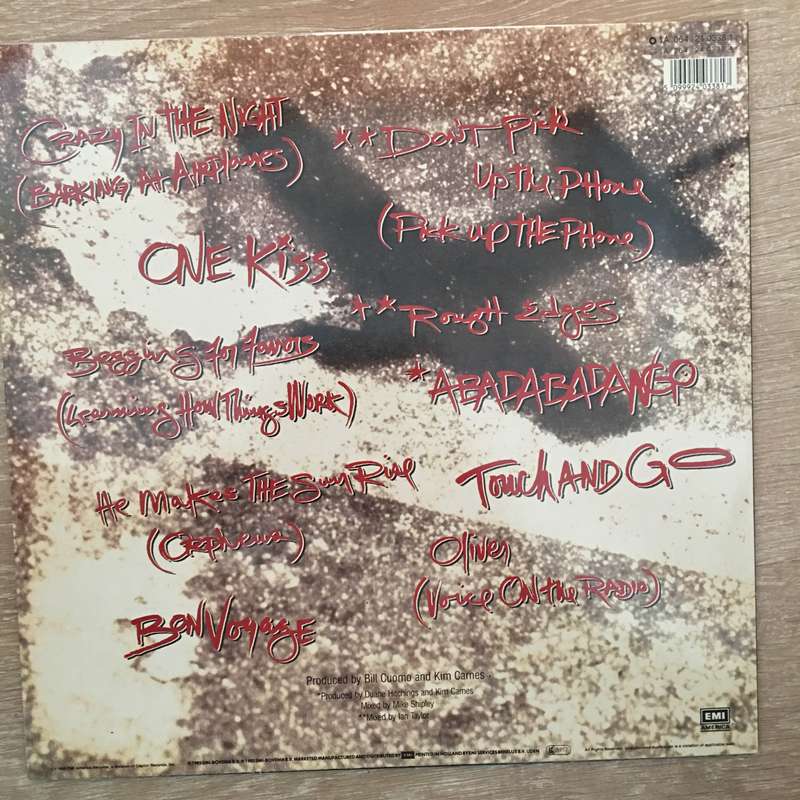 CRAZY IN THE NIGHT
(BARKING At AIRPlanes)
ONE Kiss
Begging For Favors
(Learning How Things WORK)
He Makes THE Sun Rise
(Orpheus)
BON VoyAGE
**DON'T Pick
Up the PHone
(Pick up THE PHone)
**Rough Edges
*ABADABADANGO
Touch AND GO
Oliver
(Voice ON the RADIO)
Produced by Bill Cuomo and Kim Carnes
*Produced by Duane Hitchings and Kim Carnes
Mixed by Mike Shipley
**Mixed by Ian Taylor
5099924033817
EMI
AMERICA
MARKETED, MANUFACTURED AND DISTRIBUTED BY EMI PRINTED IN HOLLAND BY EMI SERVICES BENELUX B.V. UDEN